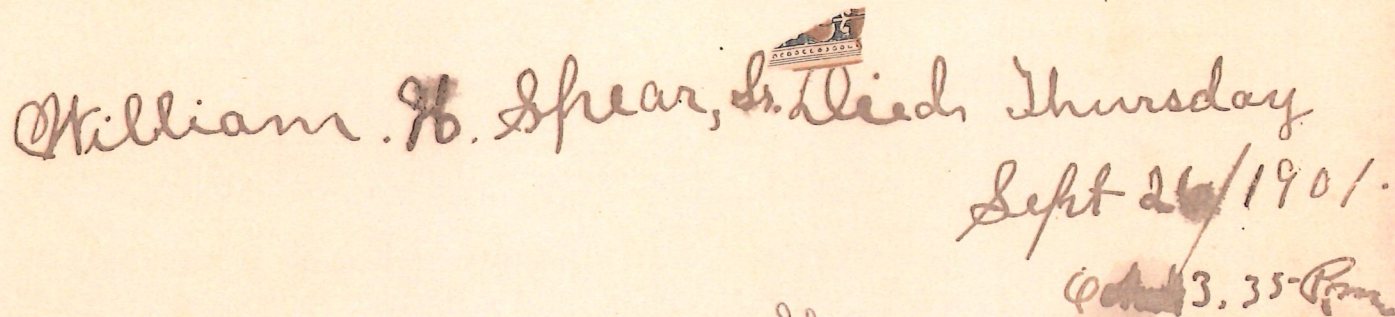 William. H. Spear, Sr. Died Thursday
Sept 26/1901.
3.35 P.m